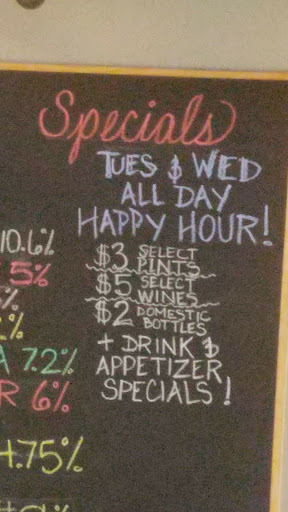 Specials
TUES & WED
ALL DAY
HAPPY HOUR!
$3 SELECT PINTS
$5 SELECT WINES
$2 DOMESTIC BOTTLES
+ DRINK &
APPETIZER
SPECIALS!
10.6%
5%
%
%
A 7.2%
R 6%
4.75%